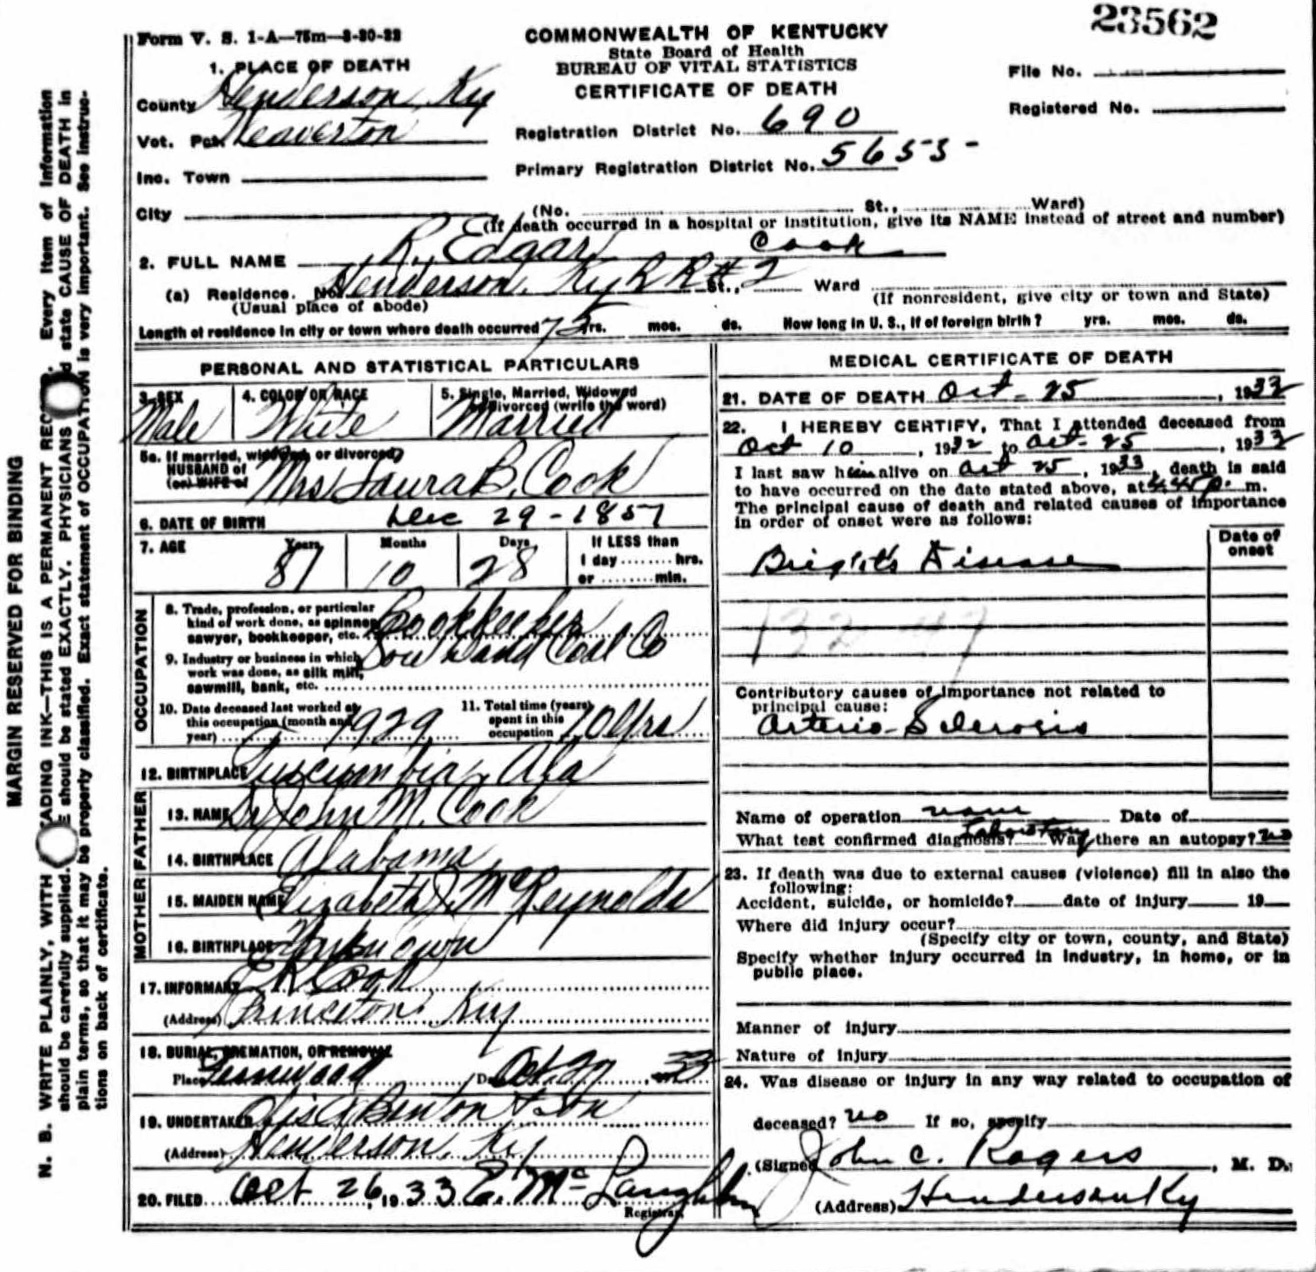 23562
Form V. S. 1-A—75m—8-30-32
COMMONWEALTH OF KENTUCKY
State Board of Health
BUREAU OF VITAL STATISTICS
CERTIFICATE OF DEATH
File No.
Registered No.
1. PLACE OF DEATH
County Henderson, Ky
Vot. Pct. Weaverton
Inc. Town
City
Registration District No. 690
Primary Registration District No. 5655-
(No. St., Ward)
(If death occurred in a hospital or institution, give its NAME instead of street and number)
2. FULL NAME R. Edgar Cook
(a) Residence. No. Henderson, Ky R R #2 St., Ward
(Usual place of abode)
(If nonresident, give city or town and State)
Length of residence in city or town where death occurred 75 yrs. mos. ds. How long in U. S., if of foreign birth? yrs. mos. ds.
PERSONAL AND STATISTICAL PARTICULARS
3. SEX Male
4. COLOR OR RACE White
5. Single, Married, Widowed or Divorced (write the word) Married
5a. If married, widowed, or divorced
HUSBAND of
(or) WIFE of Mrs Laura B. Cook
6. DATE OF BIRTH Dec 29-1857
7. AGE Years Months Days If LESS than
1 day hrs.
or min.
81 10 28
OCCUPATION
8. Trade, profession, or particular
kind of work done, as spinner,
sawyer, bookkeeper, etc. Bookkeeper
9. Industry or business in which
work was done, as silk mill,
sawmill, bank, etc. Coal Co
10. Date deceased last worked at
this occupation (month and
year) 1929
11. Total time (years)
spent in this
occupation 10 Yrs
12. BIRTHPLACE Tuscumbia, Ala
FATHER
13. NAME Dr John M. Cook
14. BIRTHPLACE Alabama
MOTHER
15. MAIDEN NAME Elizabeth J. McReynolds
16. BIRTHPLACE Unknown
17. INFORMANT E R Cook
(Address) Princeton Ky
18. BURIAL, CREMATION, OR REMOVAL
Place Fernwood Date Oct. 27 33
19. UNDERTAKER Benton & Son
(Address) Henderson, Ky
20. FILED Oct 26, 1933 E. McLaughlin
Registrar
MEDICAL CERTIFICATE OF DEATH
21. DATE OF DEATH Oct - 25, 1933
22. I HEREBY CERTIFY, That I attended deceased from
Oct 10, 1932 to Oct - 25, 1933
I last saw him alive on Oct 25, 1933, death is said
to have occurred on the date stated above, at p. m.
The principal cause of death and related causes of importance
in order of onset were as follows:
Date of
onset
Bright's Disease
132
Contributory causes of importance not related to
principal cause:
Arterio-Sclerosis
Name of operation none Date of
What test confirmed diagnosis? Laboratory Was there an autopsy? no
23. If death was due to external causes (violence) fill in also the
following:
Accident, suicide, or homicide? date of injury 19
Where did injury occur?
(Specify city or town, county, and State)
Specify whether injury occurred in industry, in home, or in
public place.
Manner of injury
Nature of injury
24. Was disease or injury in any way related to occupation of
deceased? no If so, specify
(Signed) John C. Rogers, M. D.
(Address) Henderson Ky
MARGIN RESERVED FOR BINDING
N. B. WRITE PLAINLY, WITH ADING INK—THIS IS A PERMANENT RECO. Every item of information
should be carefully supplied. E should be stated EXACTLY. PHYSICIANS d state CAUSE OF DEATH in
plain terms, so that it may be properly classified. Exact statement of OCCUPATION is very important. See instruc-
tions on back of certificate.